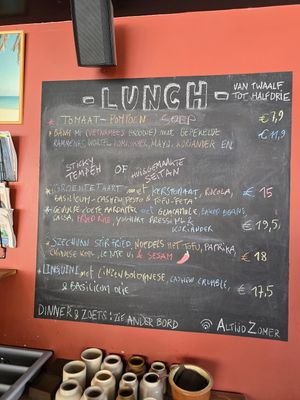 - LUNCH -
VAN TWAALF
TOT HALFDRIE
TOMAAT- POMPOEN SOEP € 7,9
BÁNH MÌ (VIETNAMEES BROODJE) met GEPEKELDE € 11,9
RAMMENAS, WORTEL, KOMKOMMER, MAYO, KORIANDER EN
STICKY TEMPEH OF HUISGEMAAKTE SEITAN
GROENTETAART met KERSTOMAAT, RUCOLA, € 15
BASILICUM - CASHEWPESTO & TOFU-FETA
GEVULDE ZOETE AARDAPPEL met GUACAMOLE, BAKED BEANS,
SALSA, FRIED RICE, YOGHURT DRESSING & € 19,5
KORIANDER
SZECHUAN STIR FRIED NOEDELS met TOFU, PAPRIKA,
CHINESE KOOL, LENTE UI & SESAM € 18
LINGUINI met LINZENBOLOGNESE, CASHEW CRUMBLE, € 17,5
& BASILICUM OLIE
DINNER & ZOETS: ZIE ANDER BORD
ALTIJD ZOMER